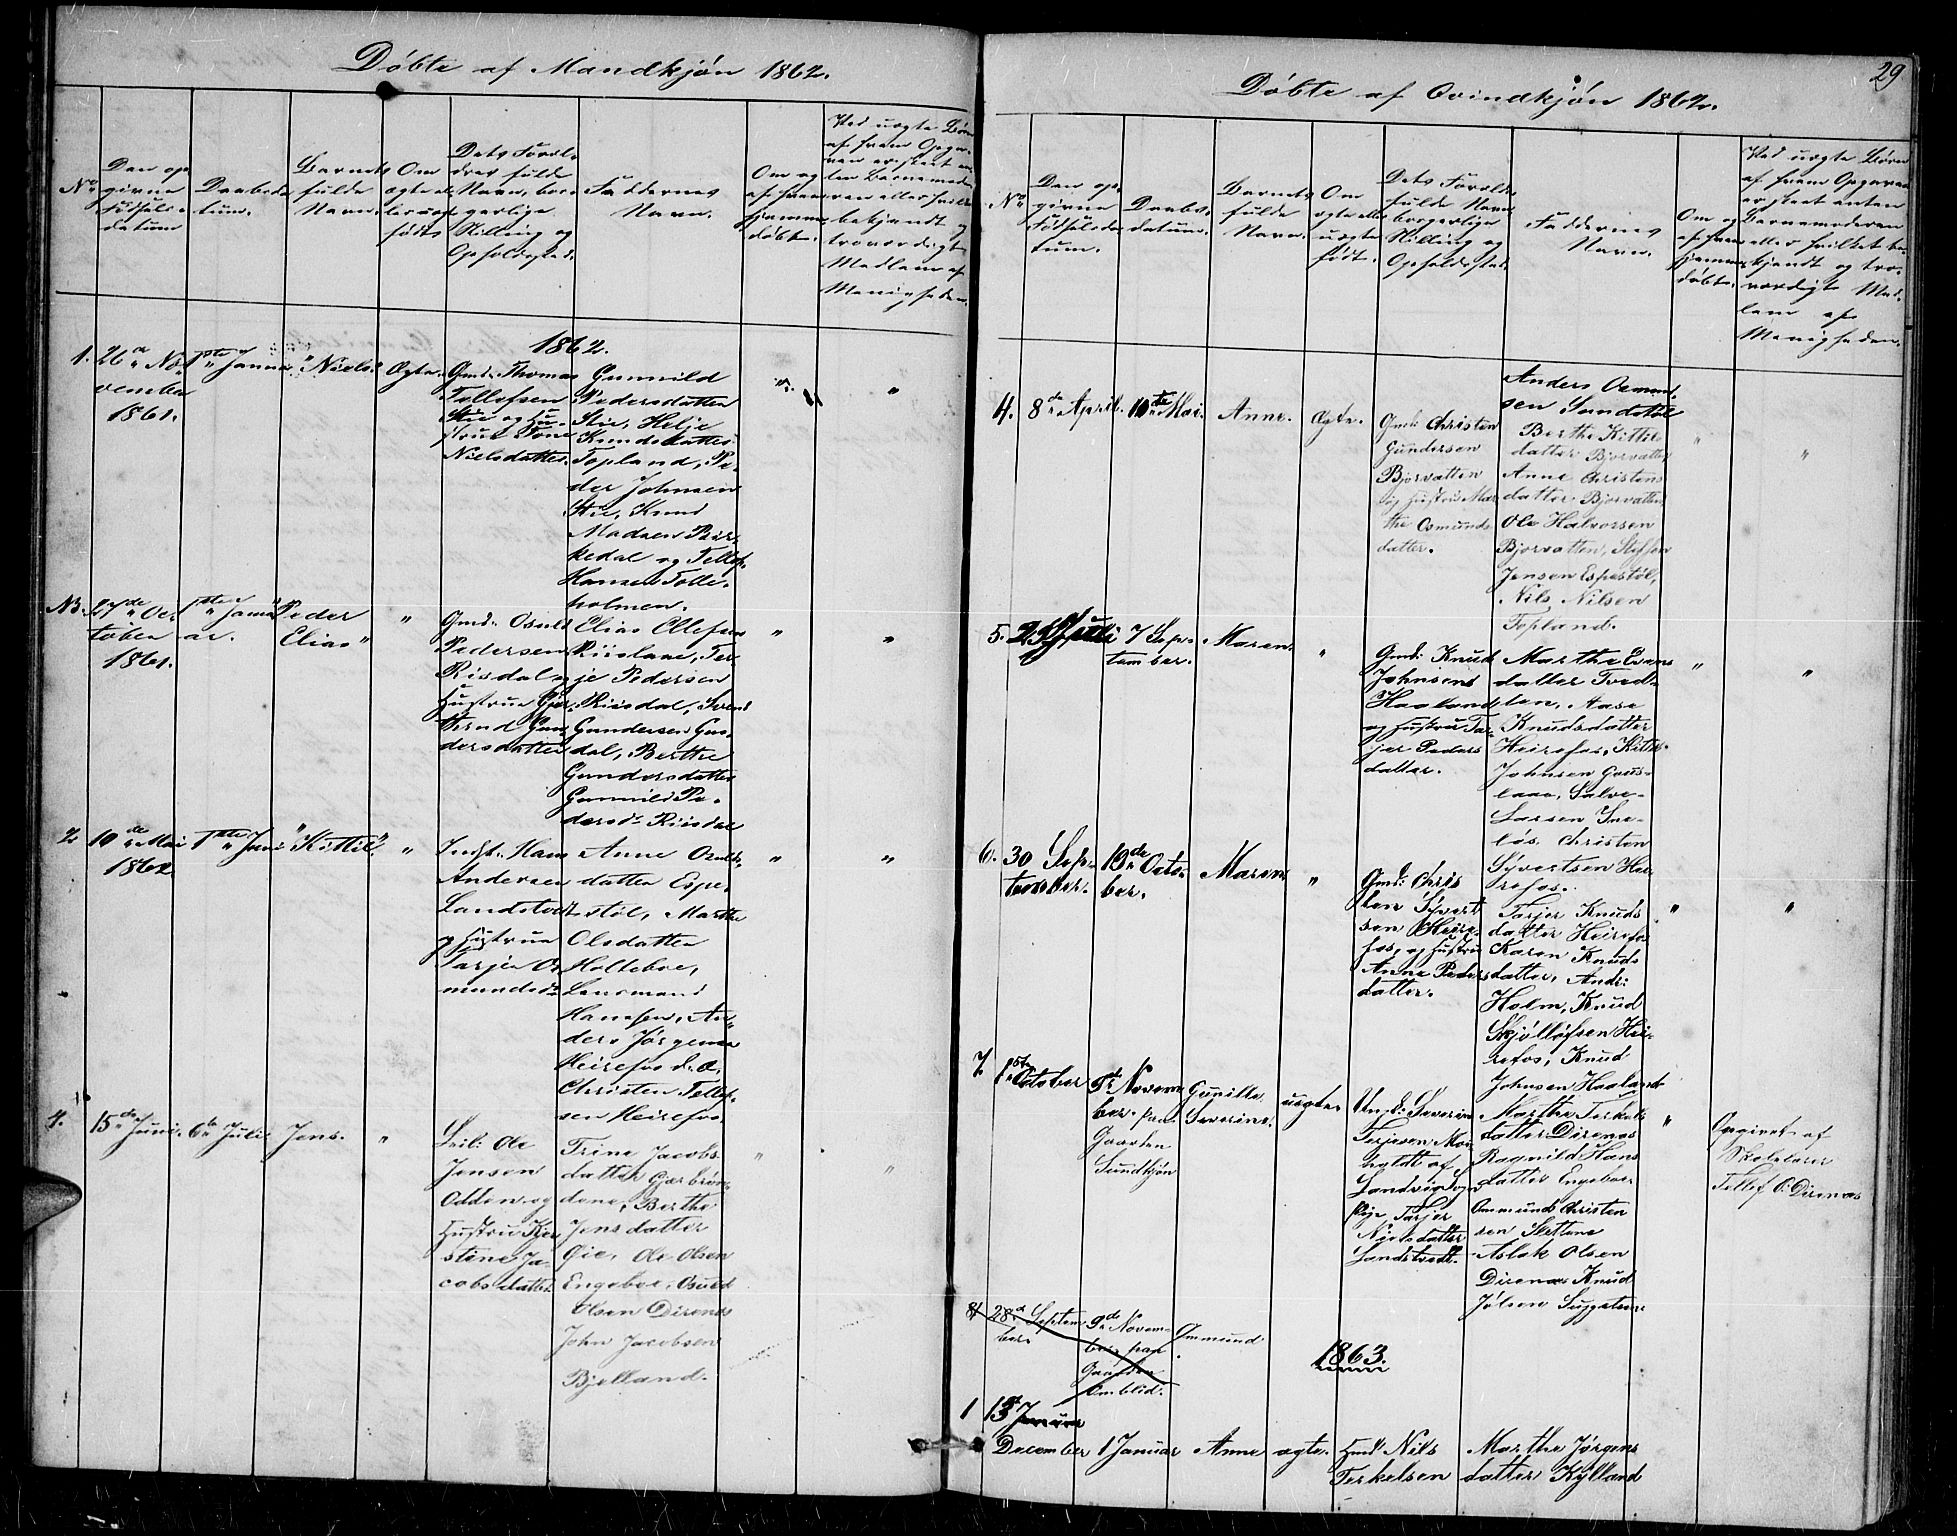 Døbte af Mandkjøn 1862.
No
Den op
givne
Fødsels-
datum
Daabsda
tum.
Barnets
fulde
Navn.
Om
ægte el
ler uægte
født.
Dets Foræl-
dres fulde
Navn, bor-
gerlige
Stilling og
Opholdssted.
Faddernes
Navn.
Om og
af hvem
hjemme-
døbt.
Ved uægte Børn
af hvem Opga-
ven er skeet en
ten Barnemode-
ren eller hvilke
bekjendt og
troværdigt
Medlem af
Menigheden.
1862.
1.
26de No-
vember
1861.
1ste Janua
Niels
Ægte.
Gmd. Thomas
Tellefsen
Stie og Hu-
strue Tone
Nielsdatter.
Gunnild
Pedersdatter
Stie, Helje
Knudsdatter
Topland, Pe-
der Johnsen
Stie, Knud
Madsen Bir-
kedal og Tellef
Hansen Tolle-
holmen.
27de Oc-
tober
1861.
1ste Janu
ar.
Peder
Elias
Gmd. Osuld
Pedersen
Risdal og
Hustrue
Gun-
dersdatter
Elias Ollefsen
Riislane, Ter-
je Pedersen
Riisdal,
Gundersen
dal, Berthe
Gundersdatter
Gunnild Pe-
dersd. Riisdal
2
10de Mai
1862.
1ste Juni
Kittil
Indst. Hans
Andersen
Landstvedt
og Hustrue
Tarjer Os-
mundsd.
Anne Osulds
datter Espe-
støl, Marthe
Olsdatter
Holteboe,
Lensmand
Hanssen, An-
ders Jørgensen
Heirefos d. æ.
Christen Tellef-
sen Heirefos.
4.
15de Juni.
6te Juli
Jens.
Ole
Jensen
Odden og
Hustru Kjer
stine Ja-
cobsdatter
Trine Jacobs
datter
dene, Berthe
Jensdatter
Øie, Ole Olsen
Engeboe, Osuld
Olsen Direnæs
John Jacobsen
Bjelland.
29
Døbte af Qvindkjøn 1862.
No
Den op-
givne
Fødselsda-
tum.
Daabs-
datum.
Barnets
fulde
Navn.
Om
ægte eller
uægte
født.
Dets Foreldr
fulde Navn
borgerlige
Stilling og
Opholdssted.
Faddernes
Navn.
Om og
af hvem
hjemme-
døbt.
Ved uægte Børn
af hvem Opgaven
er skeet enten
Barnemoderen
eller hvilket be-
kjendt og tro-
værdigt Med-
lem af
Menigheden.
4.
8de April.
10de Mai.
Anne.
Ægte.
Gmd: Christen
Gundersen
Bjorvatten
og Hustru Mar
the Osmunds
datter.
Anders Osmund
sen Sundstøl
Berthe Kittils
datter Bjorvatten
Anne Christens
datter Bjorvatten
Ole Halvorsen
Bjorvatten, Steffen
Jensen Espestøl,
Nils Nilsen
Topland.
5.
Juli
7 Sep-
tember.
Maren.
Gmd: Knud
Johnsen
Haaland
og Hustru Tar
jer Peders
datter.
Marthe Evens
datter Tved-
ten, Aase
Knudsdatter
Heirefos, Kittel
Johnsen Gaus-
laae, Salve
Larsen Sne-
løs. Christen
Syvertsen Hei-
refos.
6.
30 Sep-
tember.
19de Octo-
ber.
Maren
Gmd: Chris
ten Syvert
sen Heire-
fos, og Hustru
Anne Peders
datter.
Tarjer Knuds
datter Heirefos
Karen Knuds
datter, And:
Holm, Knud
Skjølløfsen Hei-
refos, Knud
Johnsen Haaland
7
1ste October
9de Novem
ber. paa
Gaarden
Sundtjøn
Gunille
Severine.
uægte.
Ung.k: Severin
Terjesen Mou
holdt af
Landvig Sogn
Pige Tarjer
Nielsdatter
Landstvedt.
Marthe Terkels
datter Direnæs
Ragnild Hans
datter Engeboe
Ommund Christen
sen Slettene
Aslak Olsen
Direnæs Knud
Jølsen
Opgivet af
Skolelærer
Tellef O: Direnæs
8
28de Septem
ber.
9de Novem-
ber paa
Gaarden
Omblid.
Ommund.
1863.
1
13de Januar
December
1 Januar
Anne
ægte.
Gmd: Nils
Terkelsen
Marthe Jørgens
datter Kylland